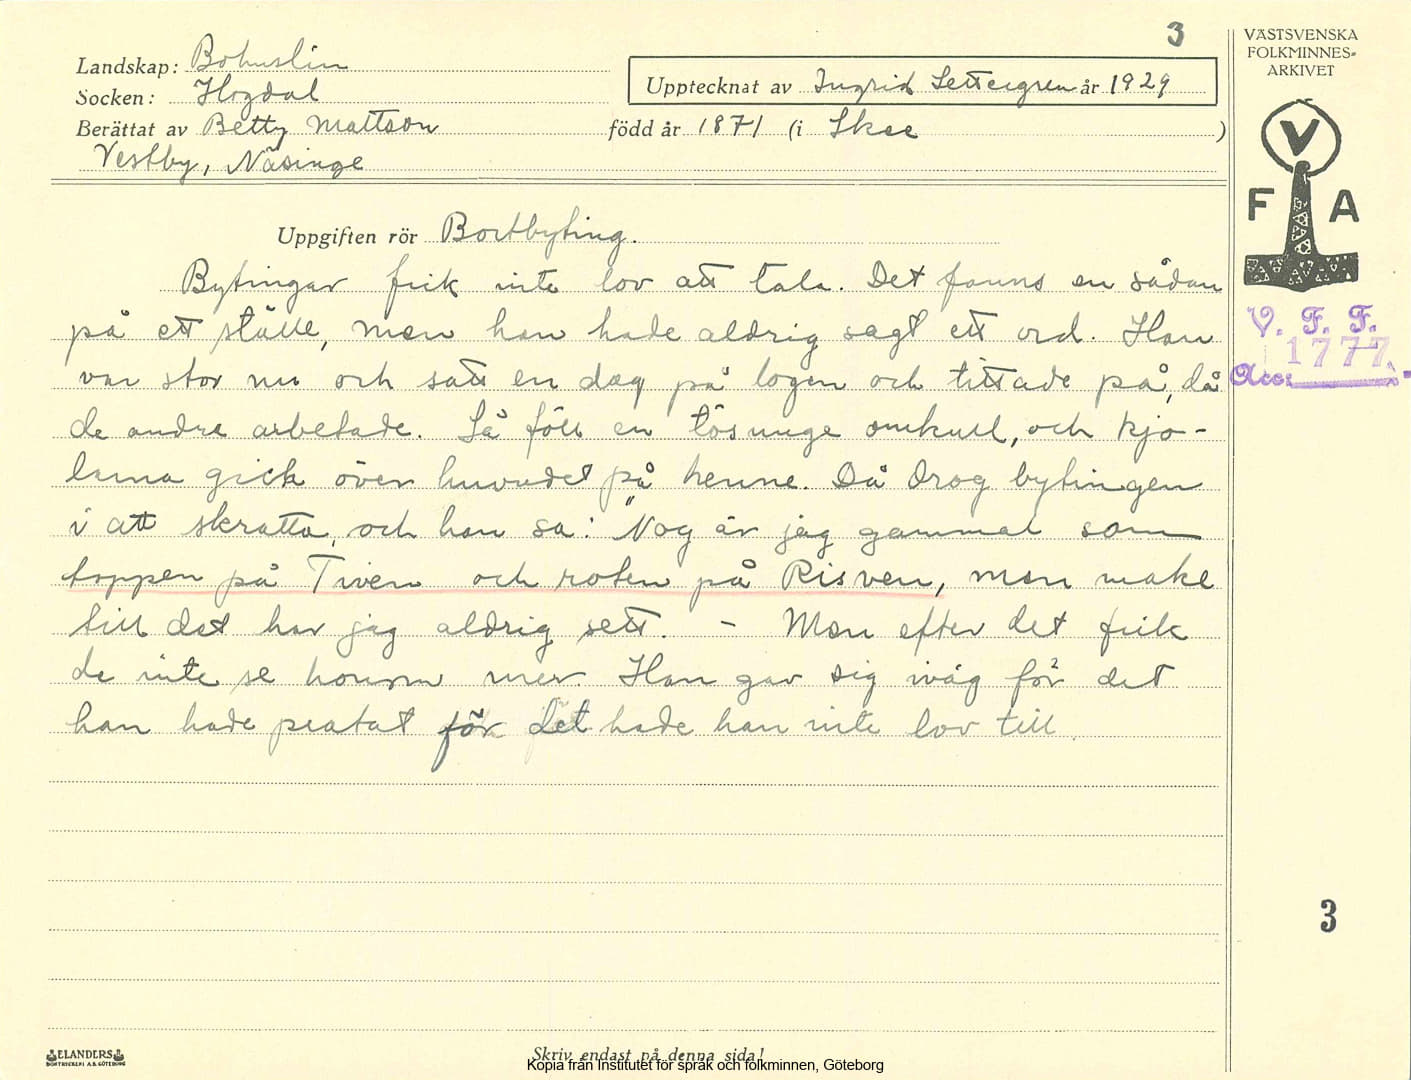 3
Landskap: Bohuslän
Socken: Hogdal
Upptecknat av Ingrid Settergren år 1929
Berättat av Betty Mattson född år 1871 (i Skee )
Vestby, Näsinge
Uppgiften rör Bortbyting.
Bytingar fick inte lov att tala. Det fanns en sådan
på ett ställe, men han hade aldrig sagt ett ord. Han
var stor nu och satt en dag på logen och tittade på, då
de andra arbetade. Så föll en tös unge omkull, och kjo-
larna gick över huvudet på henne. Då drog bytingen
i att skratta, och han sa: "Nog är jag gammal som
toppen på Tiven och roten på Risven, men make
till det har jag aldrig sett. - Men efter det fick
de inte se honom mer. Han gav sig iväg för det
han hade pratat för det hade han inte lov till.
VÄSTSVENSKA
FOLKMINNES-
ARKIVET
V
F A
V. F. F.
1777
Acc:
3
ELANDERS
BOKTRYCKERI A.B. GÖTEBORG
Skriv endast på denna sida!
Kopia från Institutet för språk och folkminnen, Göteborg